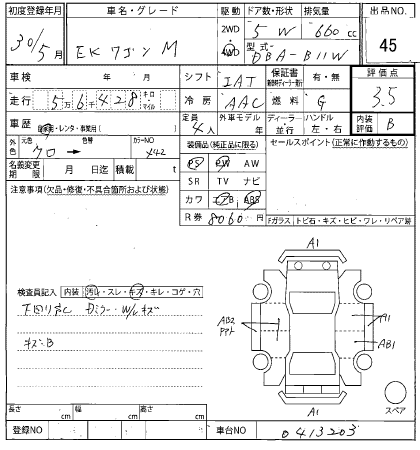 初度登録年月 車名・グレード 駆動 ドア数・形状 排気量 出品NO.
30/5月 EKワゴン M 2WD 4WD 5 W 660 cc 45
型式 DBA-B11W
車検 年 月 シフト IAT 保証書 有・無 評価点
走行 5万6千428 キロ マイル 冷房 AAC 燃料 G 3.5
車歴 自家用・レンタ・事業用( ) 定員 4人 外車モデル 年 ディーラー 並行 ハンドル 左・右 内装評価 B
外色 元色 クロ → 色替 カラーNO X42 装備品(純正品に限る) セールスポイント(正常に作動するもの)
名義変更期限 月 日迄 積載 t PS PW AW
SR TV ナビ
注意事項(欠品・修復・不具合箇所および状態) カワ エアB ABS
R券 8060円
Fガラス トビ石・キズ・ヒビ・ワレ・リペア跡
A1
検査員記入 内装 汚れ・スレ・キズ・キレ・コゲ・穴
下回りサビ Dミラー・W/Lキズ
AB2 A1
キズB
AB1
A1
スペア
長さ cm 幅 cm 高さ cm
登録NO 車台NO 0413203